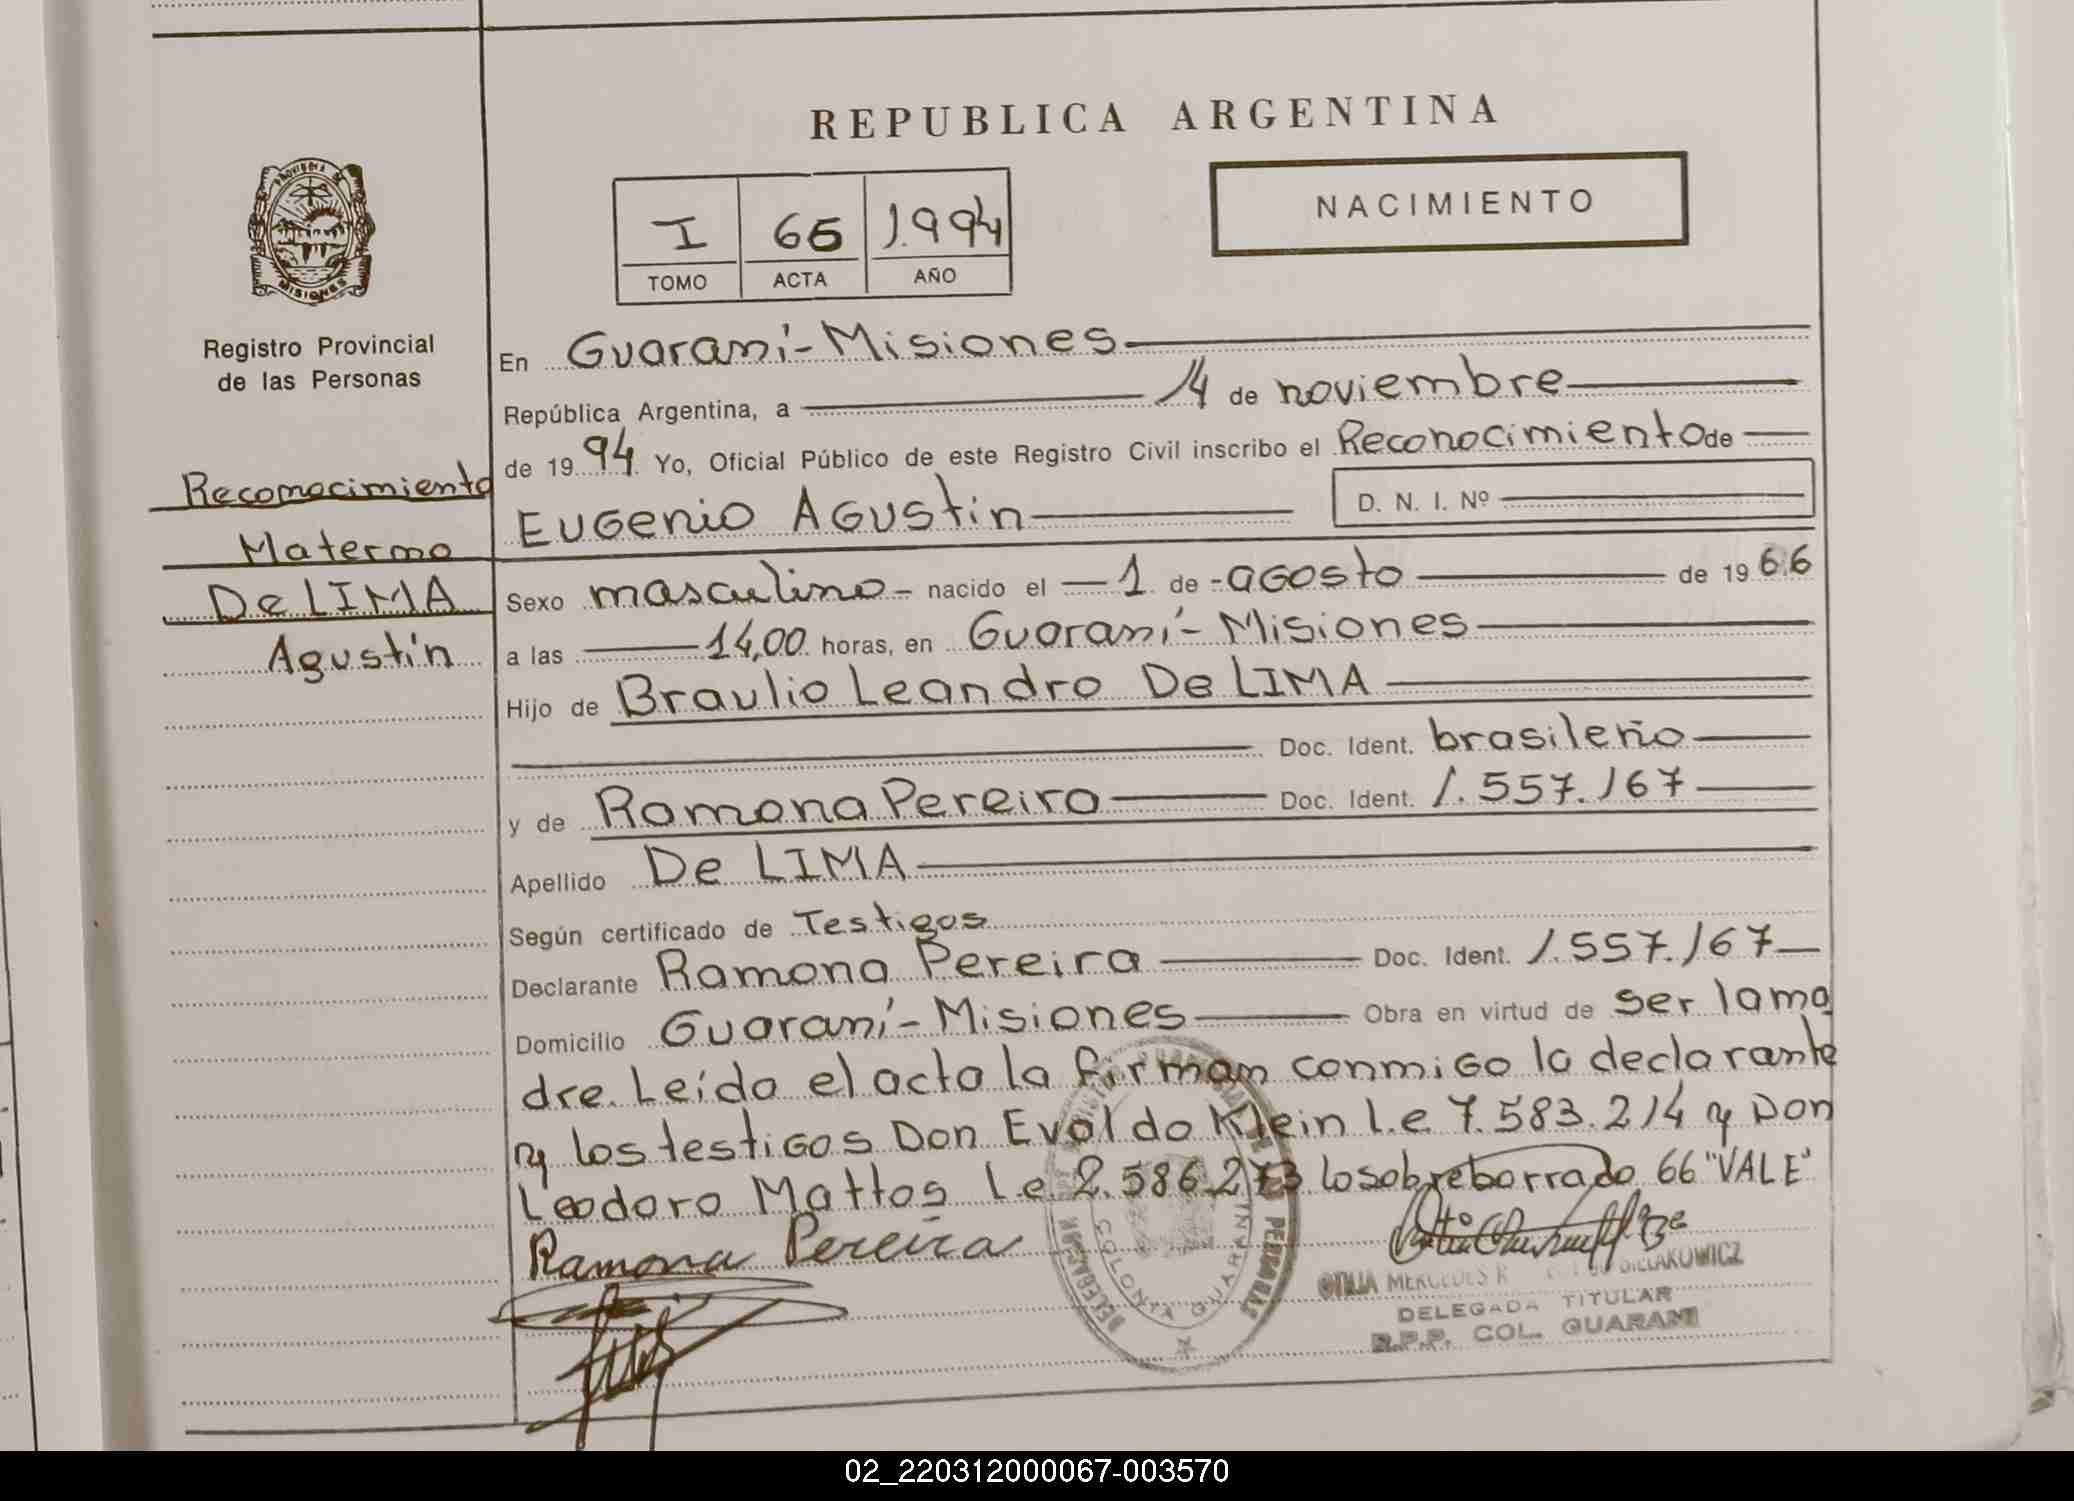 REPUBLICA ARGENTINA
NACIMIENTO
I 66 1.994
TOMO ACTA AÑO
PROVINCIA DE
MISIONES
Registro Provincial
de las Personas
Reconocimiento
Materno
De LIMA
Agustín
En Guaraní - Misiones
República Argentina, a 14 de noviembre
de 1994 Yo, Oficial Público de este Registro Civil inscribo el Reconocimiento de
EUGenio AGUStin D. N. I. Nº
Sexo masculino - nacido el 1 de - agosto de 1966
a las 14,00 horas, en Guaraní - Misiones
Hijo de Braulio Leandro De LIMA
Doc. Ident. brasileño
y de Ramona Pereira Doc. Ident. 1.557.167
Apellido De LIMA
Según certificado de Testigos
Declarante Ramona Pereira Doc. Ident. 1.557.167
Domicilio Guaraní - Misiones Obra en virtud de ser la ma
dre. Leída el acta la firman conmigo la declarante
y los testigos Don Evaldo Klein L.e 7.583.214 y Don
Leodoro Mattos L.e. 2.586.273 lo sobreborrado 66 "VALE"
Ramona Pereira
MERCEDES BIELAKOWICZ
DELEGADA TITULAR
R.P.P. COL. GUARANI
COLONIA GUARANI
02_220312000067-003570